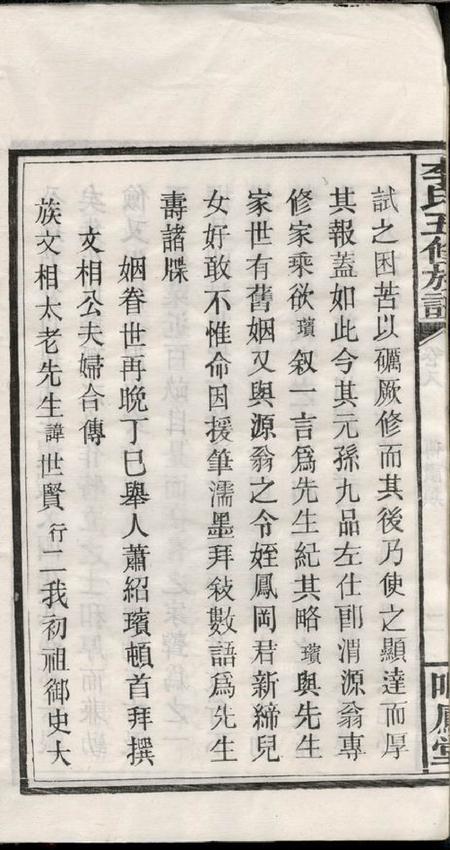 李氏五修族譜
卷八
鳳堂
試之困苦以礪厥修而其後乃使之顯達而厚
其報蓋如此今其元孫九品左仕郎渭源翁專
修家乘欲璸叙一言爲先生紀其略璸與先生
家世有舊姻又與源翁之令姪鳳岡君新締兒
女好敢不惟命因援筆濡墨拜敍數語爲先生
壽諸牒
姻眷世再晚丁巳舉人蕭紹璸頓首拜撰
文相公夫婦合傳
族文相太老先生諱世賢行二我初祖御史大